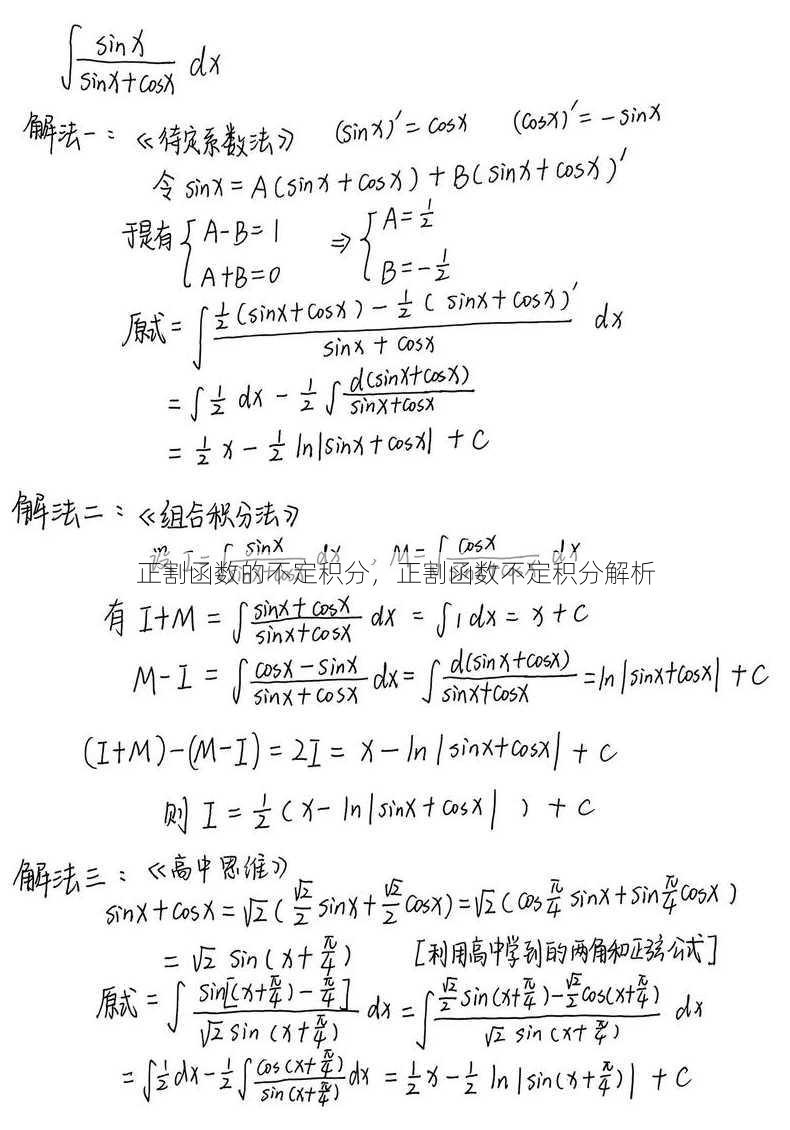 ∫ sinx/(sinx+cosx) dx
解法一：《待定系数法》 (sinx)′=cosx (cosx)′=-sinx
令 sinx=A(sinx+cosx)+B(sinx+cosx)′
于是有 { A-B=1 A+B=0 ⇒ { A=1/2 B=-1/2
原式=∫ [1/2(sinx+cosx)-1/2(sinx+cosx)′]/(sinx+cosx) dx
=∫1/2 dx - 1/2∫ d(sinx+cosx)/(sinx+cosx)
=1/2 x - 1/2 ln|sinx+cosx| +C
解法二：《组合积分法》
设 I=∫ sinx/(sinx+cosx) dx , M=∫ cosx/(sinx+cosx) dx
正割函数的不定积分，正割函数不定积分解析
有 I+M=∫ (sinx+cosx)/(sinx+cosx) dx =∫1dx=x+C
M-I=∫ (cosx-sinx)/(sinx+cosx) dx=∫ d(sinx+cosx)/(sinx+cosx) =ln|sinx+cosx| +C
(I+M)-(M-I)=2I= x-ln|sinx+cosx| +C
则 I=1/2(x-ln|sinx+cosx| ) +C
解法三：《高中思维》
sinx+cosx=√2(√2/2 sinx+√2/2 cosx)=√2(cos π/4 sinx+sin π/4 cosx)
=√2 sin(x+π/4) [利用高中学到的两角和正弦公式]
原式=∫ sin[(x+π/4)-π/4]/(√2 sin(x+π/4)) dx=∫ [√2/2 sin(x+π/4)-√2/2 cos(x+π/4)]/(√2 sin(x+π/4)) dx
=∫1/2 dx-1/2∫ cos(x+π/4)/sin(x+π/4) dx =1/2 x-1/2 ln|sin(x+π/4)| +C